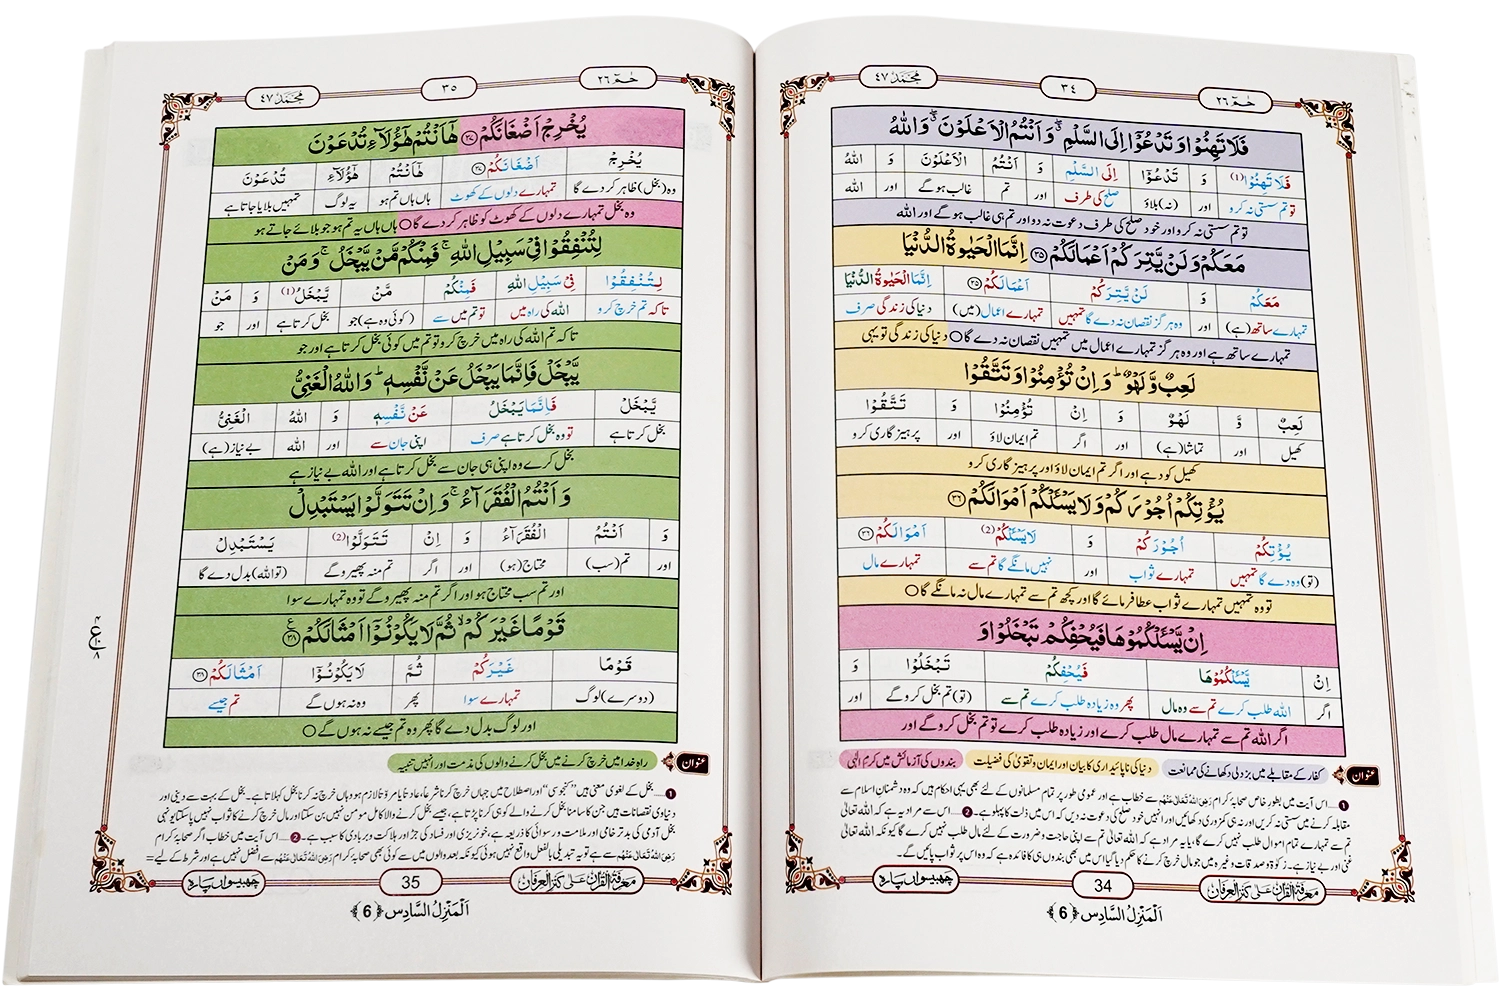 حٰمٓ ٢٦
٣٤
مُحَمَّد ٤٧
فَلَا تَهِنُوْا وَ تَدْعُوْۤا اِلَى السَّلْمِ ۖۗ وَ اَنْتُمُ الْاَعْلَوْنَ ۖۗ وَ اللّٰهُ
فَلَا تَهِنُوْا(1) وَ تَدْعُوْۤا اِلَى السَّلْمِ وَ اَنْتُمُ الْاَعْلَوْنَ وَ اللّٰهُ
تو تم سستی نہ کرو اور (نہ) بلاؤ صلح کی طرف اور تم غالب ہوگے اور اللہ
تو تم سستی نہ کرو اور خود صلح کی طرف دعوت نہ دو اور تم ہی غالب ہوگے اور اللہ
مَعَكُمْ وَ لَنْ یَّتِرَكُمْ اَعْمَالَكُمْ ﴿۳۵﴾ اِنَّمَا الْحَیٰوةُ الدُّنْیَا
مَعَكُمْ وَ لَنْ یَّتِرَكُمْ اَعْمَالَكُمْ ﴿۳۵﴾ اِنَّمَا الْحَیٰوةُ الدُّنْیَا
تمہارے ساتھ (ہے) اور وہ ہرگز نقصان نہ دے گا تمہیں تمہارے اعمال (میں) دنیا کی زندگی صرف
تمہارے ساتھ ہے اور وہ ہرگز تمہارے اعمال میں تمہیں نقصان نہ دے گا ○ دنیا کی زندگی تو یہی
لَعِبٌ وَّ لَهْوٌ ؕ وَ اِنْ تُؤْمِنُوْا وَ تَتَّقُوْا
لَعِبٌ وَّ لَهْوٌ وَ اِنْ تُؤْمِنُوْا وَ تَتَّقُوْا
کھیل اور تماشا (ہے) اور اگر تم ایمان لاؤ اور پرہیزگاری کرو
کھیل کود ہے اور اگر تم ایمان لاؤ اور پرہیزگاری کرو
یُؤْتِكُمْ اُجُوْرَكُمْ وَ لَا یَسْـَٔلْكُمْ اَمْوَالَكُمْ ﴿۳۶﴾
یُؤْتِكُمْ اُجُوْرَكُمْ وَ لَا یَسْـَٔلْكُمْ(2) اَمْوَالَكُمْ ﴿۳۶﴾
(تو) وہ دے گا تمہیں تمہارے ثواب اور نہیں مانگے گا تم سے تمہارے مال
تو وہ تمہیں تمہارے ثواب عطا فرمائے گا اور کچھ تم سے تمہارے مال نہ مانگے گا ○
اِنْ یَّسْـَٔلْكُمُوْهَا فَیُحْفِكُمْ تَبْخَلُوْا وَ
اِنْ یَّسْـَٔلْكُمُوْهَا فَیُحْفِكُمْ تَبْخَلُوْا وَ
اگر اللہ طلب کرے تم سے وہ مال پھر وہ زیادہ طلب کرے تم سے (تو) تم بخل کرو گے اور
اگر اللہ تم سے تمہارے مال طلب کرے اور زیادہ طلب کرے تو تم بخل کرو گے اور
عنوان کفار کے مقابلے میں بزدلی دکھانے کی ممانعت دنیا کی ناپائیداری کا بیان اور ایمان و تقویٰ کی فضیلت بندوں کی آزمائش میں کرمِ الٰہی
1…اس آیت میں بطورِ خاص صحابۂ کرام رَضِیَ اللہُ تَعَالٰی عَنْہُمْ سے خطاب ہے اور عمومی طور پر تمام مسلمانوں کے لئے بھی یہی احکام ہیں کہ وہ دشمنانِ اسلام سے
مقابلہ کرنے میں سستی نہ کریں اور نہ ہی کمزوری دکھائیں اور انہیں خود صلح کی دعوت نہ دیں کہ اس میں ذلت کا پہلو ہے۔ 2…اس سے مراد یہ ہے کہ اللہ تعالیٰ
تم سے تمہارے تمام اموال طلب نہیں کرے گا، یا یہ مراد ہے کہ اللہ تعالیٰ تم سے اپنی حاجت و ضرورت کے لئے مال طلب نہیں کرے گا کیونکہ اللہ تعالیٰ
غنی اور بے نیاز ہے۔ زکوٰۃ و صدقات وغیرہ میں جو مال خرچ کرنے کا حکم دیا گیا اس میں بھی بندوں ہی کا فائدہ ہے کہ وہ اس پر ثواب پائیں گے۔
معرفۃ القرآن علیٰ کنز العرفان
34
چھبیسواں پارہ
اَلْمَنْزِلُ السَّادِس ﴿6﴾
حٰمٓ ٢٦
٣٥
مُحَمَّد ٤٧
یُخْرِجْ اَضْغَانَكُمْ ﴿۳۷﴾ هٰۤاَنْتُمْ هٰۤؤُلَآءِ تُدْعَوْنَ
یُخْرِجْ اَضْغَانَكُمْ ﴿۳۷﴾ هٰۤاَنْتُمْ هٰۤؤُلَآءِ تُدْعَوْنَ
وہ (بخل) ظاہر کر دے گا تمہارے دلوں کے کھوٹ ہاں ہاں تم ہو یہ لوگ تمہیں بلایا جاتا ہے
وہ بخل تمہارے دلوں کے کھوٹ کو ظاہر کر دے گا ○ ہاں ہاں یہ تم ہو جو بلائے جاتے ہو
لِتُنْفِقُوْا فِیْ سَبِیْلِ اللّٰهِ ۚ فَمِنْكُمْ مَّنْ یَّبْخَلُ ۚ وَ مَنْ
لِتُنْفِقُوْا فِیْ سَبِیْلِ اللّٰهِ فَمِنْكُمْ مَّنْ یَّبْخَلُ(1) وَ مَنْ
تاکہ تم خرچ کرو اللہ کی راہ میں تو تم میں سے (کوئی وہ ہے) جو بخل کرتا ہے اور جو
تاکہ تم اللہ کی راہ میں خرچ کرو تو تم میں کوئی بخل کرتا ہے اور جو
یَّبْخَلْ فَاِنَّمَا یَبْخَلُ عَنْ نَّفْسِهٖ ؕ وَ اللّٰهُ الْغَنِیُّ
یَّبْخَلْ فَاِنَّمَا یَبْخَلُ عَنْ نَّفْسِهٖ وَ اللّٰهُ الْغَنِیُّ
بخل کرتا ہے تو وہ بخل کرتا ہے صرف اپنی جان سے اور اللہ بے نیاز (ہے)
بخل کرے وہ اپنی ہی جان سے بخل کرتا ہے اور اللہ بے نیاز ہے
وَ اَنْتُمُ الْفُقَرَآءُ ۚ وَ اِنْ تَتَوَلَّوْا یَسْتَبْدِلْ
وَ اَنْتُمُ الْفُقَرَآءُ وَ اِنْ تَتَوَلَّوْا(2) یَسْتَبْدِلْ
اور تم (سب) محتاج (ہو) اور اگر تم منہ پھیرو گے (تو اللہ) بدل دے گا
اور تم سب محتاج ہو اور اگر تم منہ پھیرو گے تو وہ تمہارے سوا
قَوْمًا غَیْرَكُمْ ۙ ثُمَّ لَا یَكُوْنُوْۤا اَمْثَالَكُمْ ﴿۳۸﴾
قَوْمًا غَیْرَكُمْ ثُمَّ لَا یَكُوْنُوْۤا اَمْثَالَكُمْ ﴿۳۸﴾
(دوسرے) لوگ تمہارے سوا پھر وہ نہ ہوں گے تم جیسے
اور لوگ بدل دے گا پھر وہ تم جیسے نہ ہوں گے ○
عنوان راہِ خدا میں خرچ کرنے میں بخل کرنے والوں کی مذمت اور انہیں تنبیہ
1…بخل کے لغوی معنی ہیں "کنجوسی" اور اصطلاح میں جہاں خرچ کرنا شرعاً، عادتاً یا مروّتاً لازم ہو وہاں خرچ نہ کرنا بخل کہلاتا ہے۔ بخل کے بہت سے دینی اور
دنیاوی نقصانات ہیں جن کا سامنا بخل کرنے والے کو ہی کرنا پڑتا ہے، جیسے بخل کرنے والا کامل مومن نہیں بن سکتا اور مال خرچ کرنے کا ثواب نہیں پاسکتا یونہی
بخل آدمی کی بدتر خامی اور ملامت و رسوائی کا ذریعہ ہے، خونریزی اور فساد کی جڑ اور ہلاکت و بربادی کا سبب ہے۔ 2…اس آیت میں خطاب اگر صحابۂ کرام
رَضِیَ اللہُ تَعَالٰی عَنْہُمْ سے ہے تو یہ تبدیلی بالفعل واقع نہیں ہوئی کیونکہ بعد والوں میں سے کوئی بھی صحابۂ کرام رَضِیَ اللہُ تَعَالٰی عَنْہُمْ سے افضل نہیں ہے اور شرط کے لیے=
معرفۃ القرآن علیٰ کنز العرفان
35
چھبیسواں پارہ
اَلْمَنْزِلُ السَّادِس ﴿6﴾